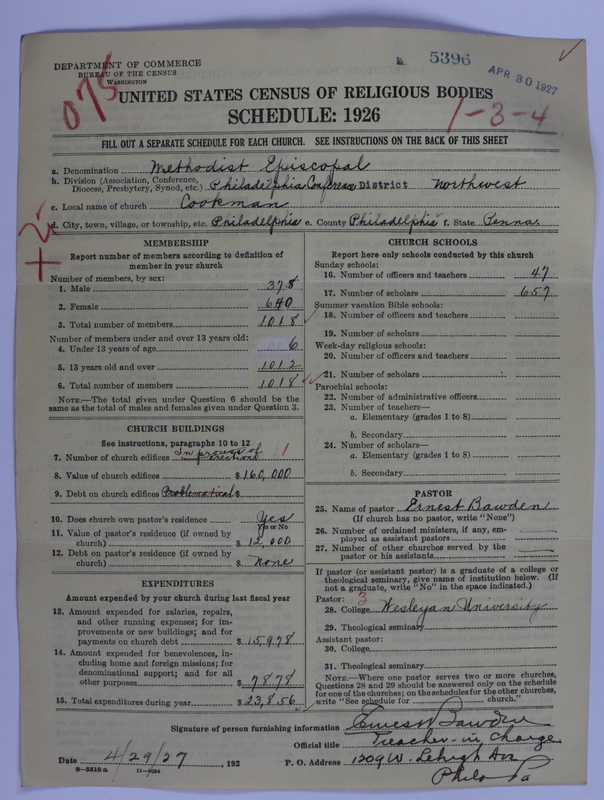 5396
APR 30 1927
DEPARTMENT OF COMMERCE
BUREAU OF THE CENSUS
WASHINGTON
075
UNITED STATES CENSUS OF RELIGIOUS BODIES
SCHEDULE: 1926
1-3-4
FILL OUT A SEPARATE SCHEDULE FOR EACH CHURCH. SEE INSTRUCTIONS ON THE BACK OF THIS SHEET
a. Denomination Methodist Episcopal
b. Division (Association, Conference, Diocese, Presbytery, Synod, etc.) Philadelphia Conference District Northwest
c. Local name of church Cookman
d. City, town, village, or township, etc. Philadelphia e. County Philadelphia f. State Penna.
+2
MEMBERSHIP
Report number of members according to definition of
member in your church
Number of members, by sex:
1. Male 378
2. Female 640
3. Total number of members 1018
Number of members under and over 13 years old:
4. Under 13 years of age 6
5. 13 years old and over 1012
6. Total number of members 1018
NOTE.—The total given under Question 6 should be
same as the total of males and females given under Question 3.
CHURCH BUILDINGS
See instructions, paragraphs 10 to 12
7. Number of church edifices In process of erection 1
8. Value of church edifices $160,000
9. Debt on church edifices Problematical $
10. Does church own pastor's residence Yes
Yes or No
11. Value of pastor's residence (if owned by
church) $ 12,000
12. Debt on pastor's residence (if owned by
church) $ none
EXPENDITURES
Amount expended by your church during last fiscal year
13. Amount expended for salaries, repairs,
and other running expenses; for im-
provements or new buildings; and for
payments on church debt $ 15,978
14. Amount expended for benevolences, in-
cluding home and foreign missions; for
denominational support; and for all
other purposes $ 7878
15. Total expenditures during year $ 23,856
CHURCH SCHOOLS
Report here only schools conducted by this church
Sunday schools:
16. Number of officers and teachers 47
17. Number of scholars 657
Summer vacation Bible schools:
18. Number of officers and teachers
19. Number of scholars
Week-day religious schools:
20. Number of officers and teachers
21. Number of scholars
Parochial schools:
22. Number of administrative officers
23. Number of teachers—
a. Elementary (grades 1 to 8)
b. Secondary
24. Number of scholars—
a. Elementary (grades 1 to 8)
b. Secondary
PASTOR
25. Name of pastor Ernest Bawden
(If church has no pastor, write "None")
26. Number of ordained ministers, if any, em-
ployed as assistant pastors
27. Number of other churches served by the
pastor or his assistants
If pastor (or assistant pastor) is a graduate of a college or
theological seminary, give name of institution below. (If
not a graduate, write "No" in the space indicated.)
Pastor: 3
28. College Wesleyan University
29. Theological seminary
Assistant pastor:
30. College
31. Theological seminary
NOTE.—Where one pastor serves two or more churches,
Questions 28 and 29 should be answered only on the schedule
for one of the churches; on the schedules for the other churches,
write "See schedule for church."
Signature of person furnishing information Ernest Bawden
Official title Preacher-in-Charge
Date 4/29/27, 192 P. O. Address 1209 W. Lehigh Ave
Phila Pa
6-5518a 11-9064